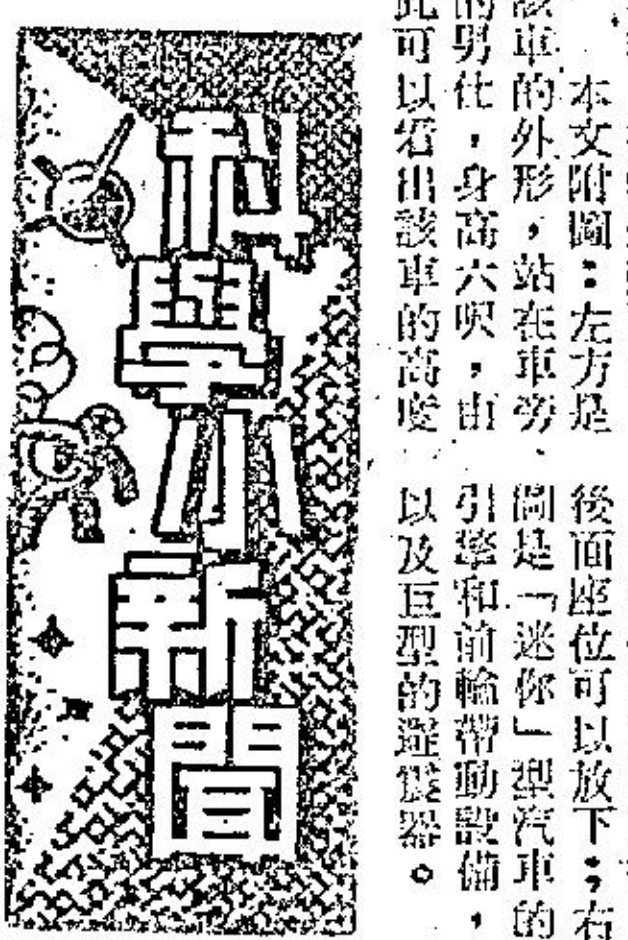 本文附圖：左方是
該車的外形，站在車旁
的男仕，身高六呎，由
此可以看出該車的高度
後面座位可以放下；右
圖是「迷你」型汽車的
引擎和前輪帶動設備，
以及巨型的避震器。
科學小新聞